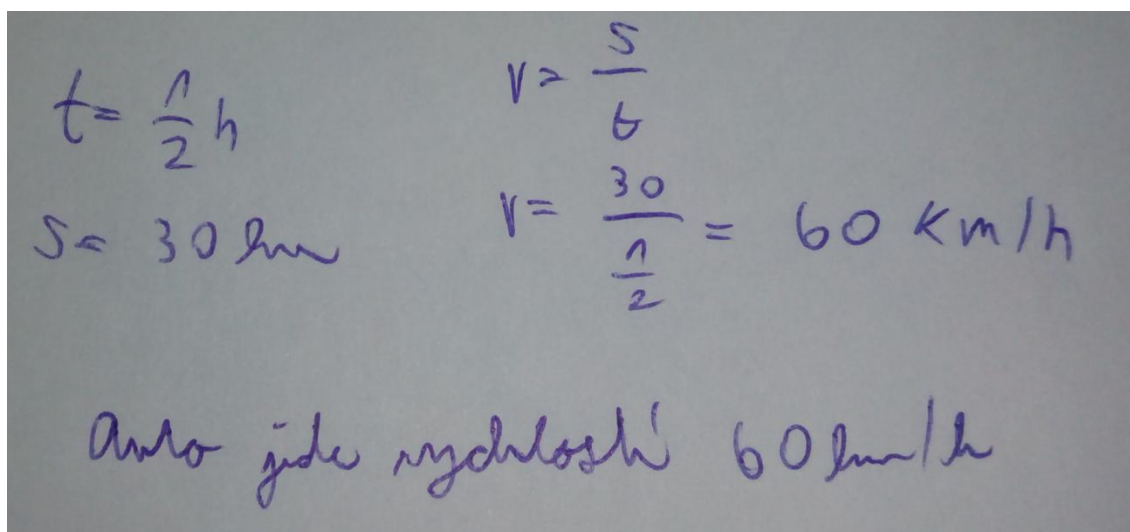 t = 1/2 h
s = 30 km
v = s/t
v = 30/(1/2) = 60 km/h
Auto jede rychlostí 60 km/h